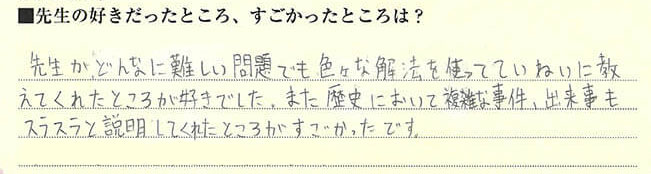 ■先生の好きだったところ、すごかったところは？
先生が、どんなに難しい問題でも色々な解法を使ってていねいに教
えてくれたところが好きでした。また歴史において複雑な事件、出来事も
スラスラと説明してくれたところがすごかったです。